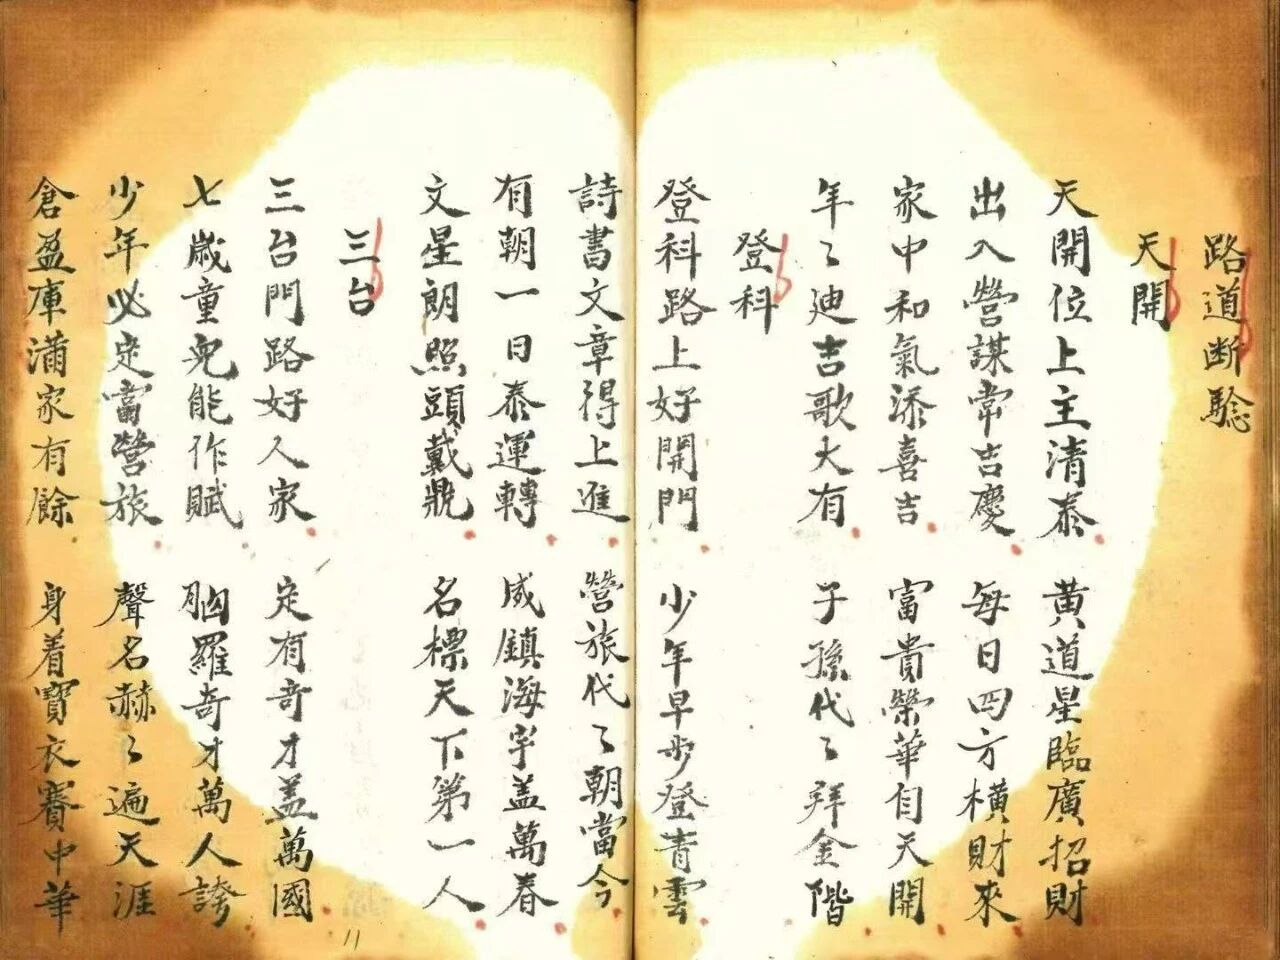 路道断驗
天開
天開位上主清泰 黃道星臨廣招財
出入營謀常吉慶 每日四方横財來
家中和氣添喜吉 富貴榮華自天開
年〻迪吉歌大有 子孫代〻拜金階
登科
登科路上好開門 少年早步登青雲
詩書文章得上進 營旅代〻朝當今
有朝一日泰運轉 威鎮海宇盖萬春
文星朗照頭戴 名標天下第一人
三台
三台門路好人家 定有奇才盖萬國
七歲童兒能作賦 胸羅奇才萬人誇
少年必定富營旅 聲名赫〻遍天涯
倉盈庫滿家有餘 身着寶衣賽中華
11